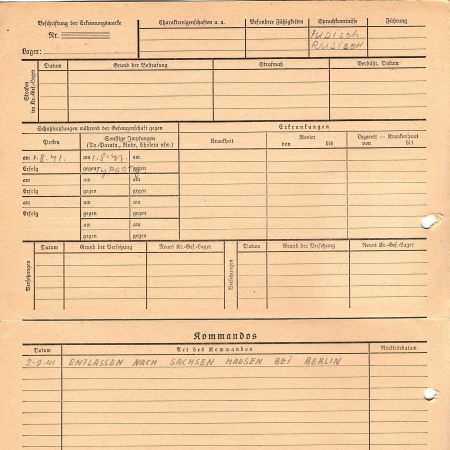 Beschriftung der Erkennungsmarke
Nr.
Lager:
Charaktereigenschaften u. a.
Besondere Fähigkeiten
Sprachkenntnisse
JUDISCH
RUSISCH
Führung
Strafen im Kr.-Gef.-Lager
Datum
Grund der Bestrafung
Strafmaß
Verbüßt, Datum
Schutzimpfungen während der Gefangenschaft gegen
Pocken
Sonstige Impfungen
(Ty.-Paraty., Ruhr, Cholera usw.)
am 1.8.41.
am 1.8.41.
am
Erfolg
gegen TYPARA
gegen
am
am
am
Erfolg
gegen
gegen
am
am
am
Erfolg
gegen
gegen
am
am
gegen
gegen
Erkrankungen
Krankheit
Revier
von
bis
Lazarett – Krankenhaus
von
bis
Versetzungen
Datum
Grund der Versetzung
Neues Kr.-Gef.-Lager
Versetzungen
Datum
Grund der Versetzung
Neues Kr.-Gef.-Lager
Kommandos
Datum
Art des Kommandos
Rückkehrdatum
2-9-41 ENTLASSEN NACH SACHSEN HAUSEN BEI BERLIN